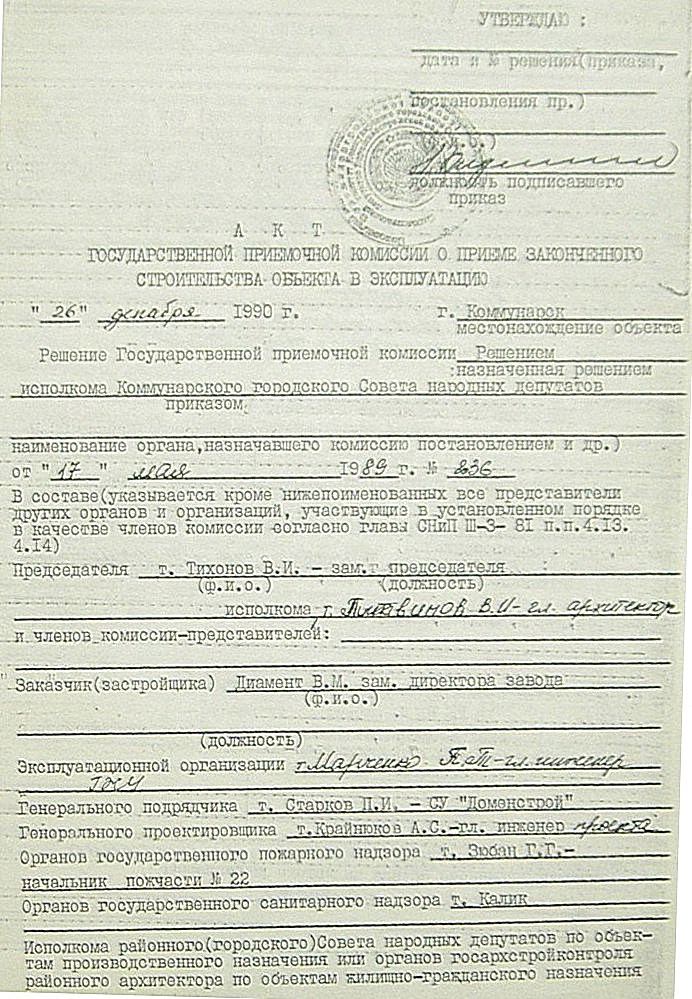 УТВЕРЖДАЮ :
дата и № решения(приказа,
постановления пр.)
должность подписавшего
приказ
А К Т
ГОСУДАРСТВЕННОЙ ПРИЕМОЧНОЙ КОМИССИИ О ПРИЕМЕ ЗАКОНЧЕННОГО
СТРОИТЕЛЬСТВА ОБЪЕКТА В ЭКСПЛУАТАЦИЮ
"26" декабря 1990 г. г. Коммунарск
местонахождение объекта
Решение Государственной приемочной комиссии Решением
:назначенная решением
исполкома Коммунарского городского Совета народных депутатов
приказом,
наименование органа,назначавшего комиссию постановлением и др.)
от "17" мая 1989 г. № 236
В составе(указывается кроме нижепоименованных все представители
других органов и организаций, участвующие в установленном порядке
в качестве членов комиссии согласно главы СНиП Ш-3- 81 п.п.4.13.
4.14)
Председателя т. Тихонов В.И. - зам. председателя
(ф.и.о.) (должность)
исполкома т. В.И- гл. архитектор
и членов комиссии-представителей:
Заказчик(застройщика) Диамент В.М. зам. директора завода
(ф.и.о.)
(должность)
Эксплуатационной организации т Марченко гл. инженер
Генерального подрядчика т. Старков П.И. - СУ "Доменстрой"
Генерального проектировщика т.Крайнюков А.С.-гл. инженер проекта
Органов государственного пожарного надзора т. Зюбан Г.Г.-
начальник пожчасти № 22
Органов государственного санитарного надзора т. Калик
Исполкома районного(городского)Совета народных депутатов по объек-
там производственного назначения или органов госархстройконтроля
районного архитектора по объектам жилищно-гражданского назначения